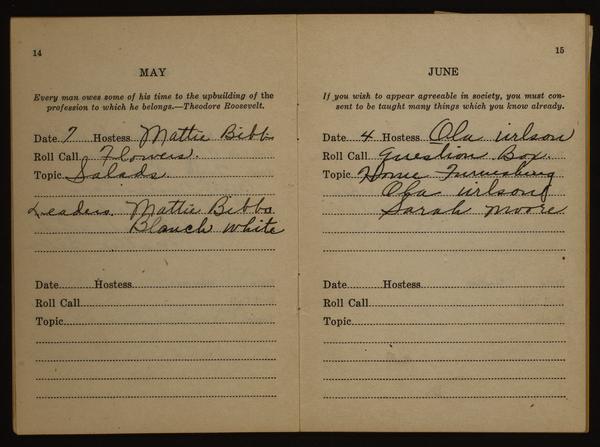 14
MAY
Every man owes some of his time to the upbuilding of the
profession to which he belongs.—Theodore Roosevelt.
Date 7 Hostess Mattie Bibbs
Roll Call Flowers.
Topic Salads
Leaders Mattie Bibbs
Blanch White
Date Hostess
Roll Call
Topic
15
JUNE
If you wish to appear agreeable in society, you must con-
sent to be taught many things which you know already.
Date 4 Hostess Ola Wilson
Roll Call Question Box.
Topic Home Furnishing
Ola Wilson
Sarah Moore
Date Hostess
Roll Call
Topic